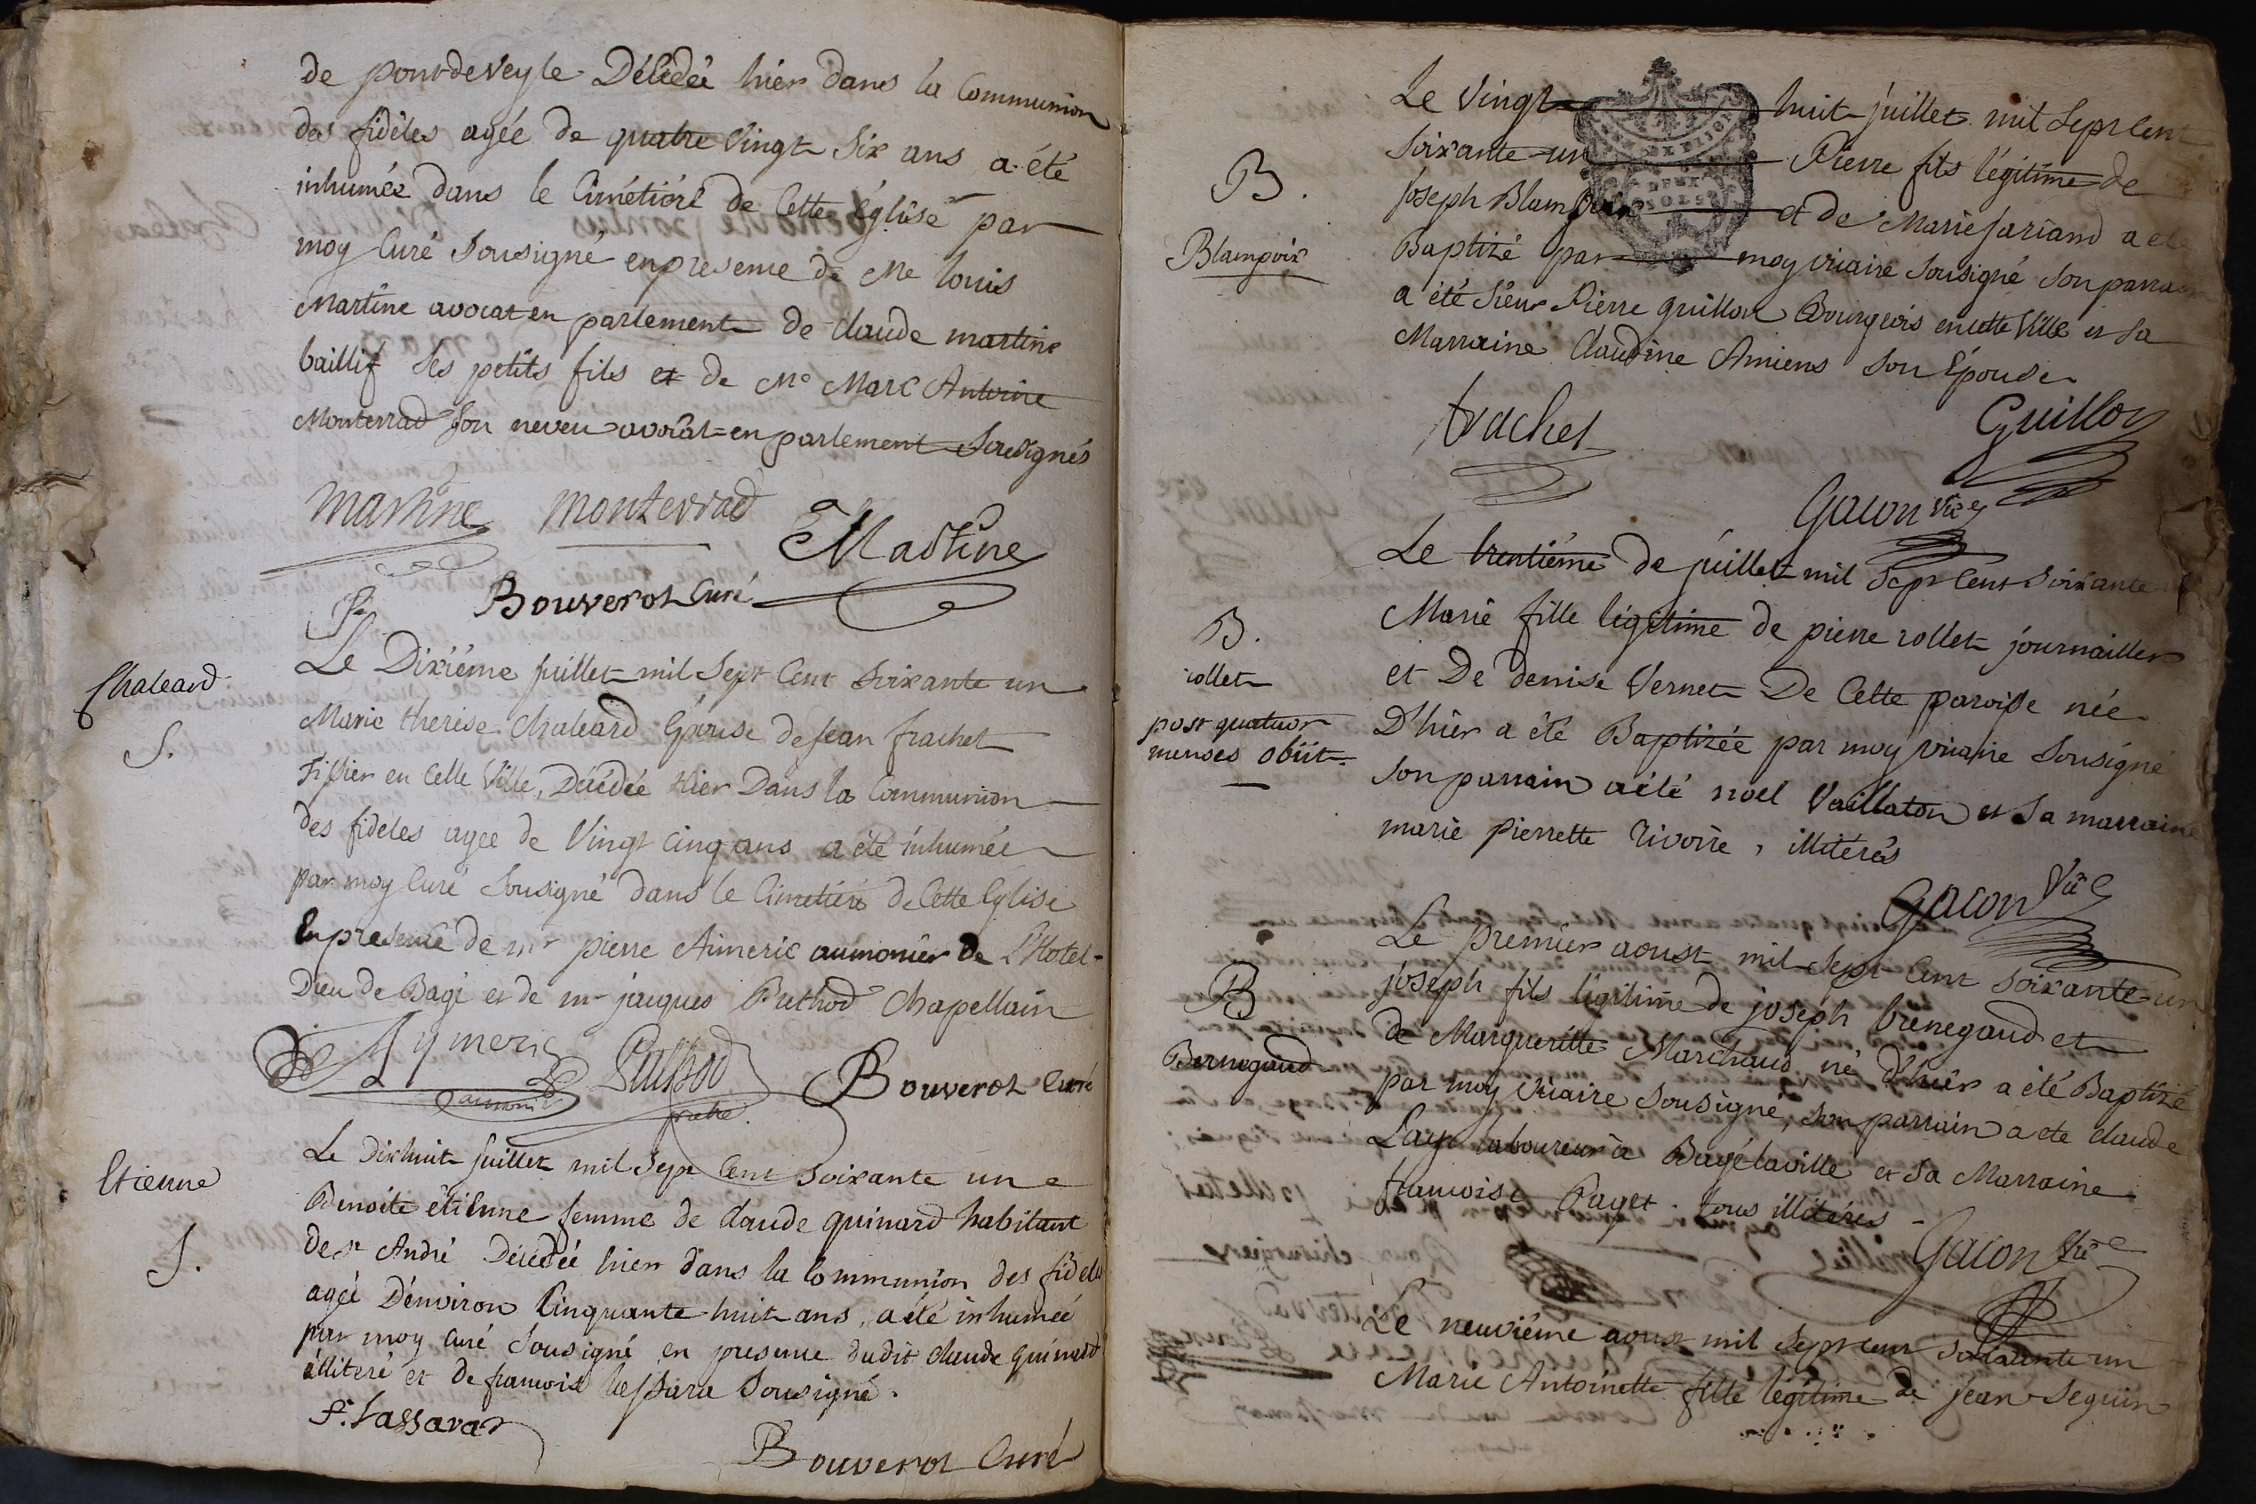 de pontdeveyle Décédée hier dans la Communion
des fidèles agée de quatre vingt Six ans a été
inhumée dans le Cimétiére de Cette église par
moy Curé Sousigné en presence de Me louis
Martine avocat en parlement de claude martine
baillif Ses petits fils et de Me Marc Antoine
Monterrad Son neveu avocat en parlement Sousignés
Martine Monterrad Martine
Bouverot Curé
Chaleard
S.
Le Dixiéme juillet mil Sept Cent Soixante un
Marie therese Chaleard Épouse de jean frachet
Tissier en Cette Ville, Décédée hier Dans la Communion
des fideles agee de Vingt Cinq ans a été inhumée
par moy Curé Sousigné dans le Cimetiére de Cette Eglise
En presence de mr pierre Aimeric aumonier de L'Hotel-
Dieu de Bagé et de mr jacques Puthod Chapellain
Aymeric Puthod Bouverot Curé
aumonier prêtre
Etienne
S.
Le Dixhuit juillet mil Sept Cent Soixante un
Benoite étienne femme de claude guinard habitant
de st André Décédée hier dans la Communion des fideles
agée D'environ Cinquante huit ans, a été inhumée
par moy Curé Sousigné en presence dudit claude guinard
illiteré et de francois lassara Sousigné.
f. Lassara
Bouverot Curé
B.
Blampoix
Le Vingt huit juillet mil Sept Cent
Soixante un Pierre fils légitime de
joseph Blampoix et de Marie jariand a eté
Baptizé par moy vicaire Sousigné Son parrain
a été Sieur Pierre guillon Bourgeois en cette Ville et Sa
Marraine Claudine Amiens Son Épouse
DEUX
SOLS
trachet Guillon
Gacon vic
B.
rollet
post quatuor
menses obiit
Le trentiéme de juillet mil Sept Cent Soixante
Marie fille légitime de pierre rollet journaillier
et De denise Vernet De Cette paroisse née
D'hier a été Baptizée par moy vicaire Sousigné
Son parrain a été noel Vaillaton et Sa marraine
marie pierrette rivoire, illitérés
Gacon Vic
B
Bernegaud
Le premier aoust mil Sept Cent Soixante un
joseph fils légitime de joseph brenegaud et
de Marguerite Marchand né D'hier a été Baptizé
par moy vicaire Sousigné, son parrain a ete claude
laboureur à Bagélaville et Sa Marraine
francoise Paget. tous illitérés
Gacon Vic
Le neuviéme aoust mil Sept cent Soixante un
Marie Antoinette fille légitime de jean Seguin